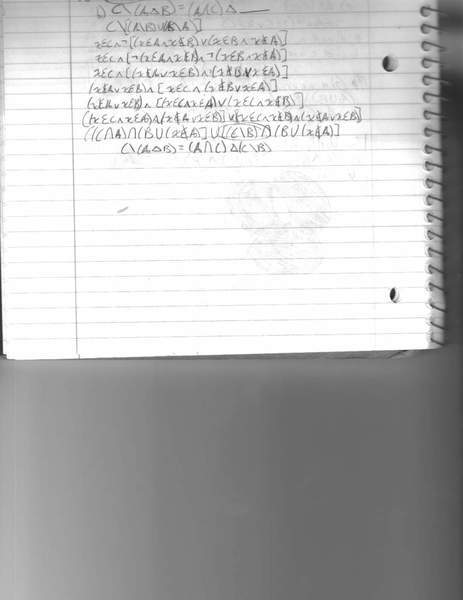 C\(A∆B)=(A∩C)∆ ___
C\[(A\B)∪(B\A)]
x∈C∧¬[(x∈A∧x∉B)∨(x∈B∧x∉A)]
x∈C∧[¬(x∈A∧x∉B)∧¬(x∈B∧x∉A)]
x∈C∧[(x∉A∨x∈B)∧(x∉B∨x∈A)]
(x∉A∨x∈B)∧[x∈C∧(x∉B∨x∈A)]
(x∉A∨x∈B)∧[(x∈C∧x∈A)∨(x∈C∧x∉B)]
[(x∈C∧x∈A)∧(x∉A∨x∈B)]∪[(x∈C∧x∉B)∧(x∉A∨x∈B)]
[(C∩A)∩(B∪(x∉A)]∪[(C\B)∩(B∪(x∉A)]
C\(A∆B)=(A∩C)∆(C\B)